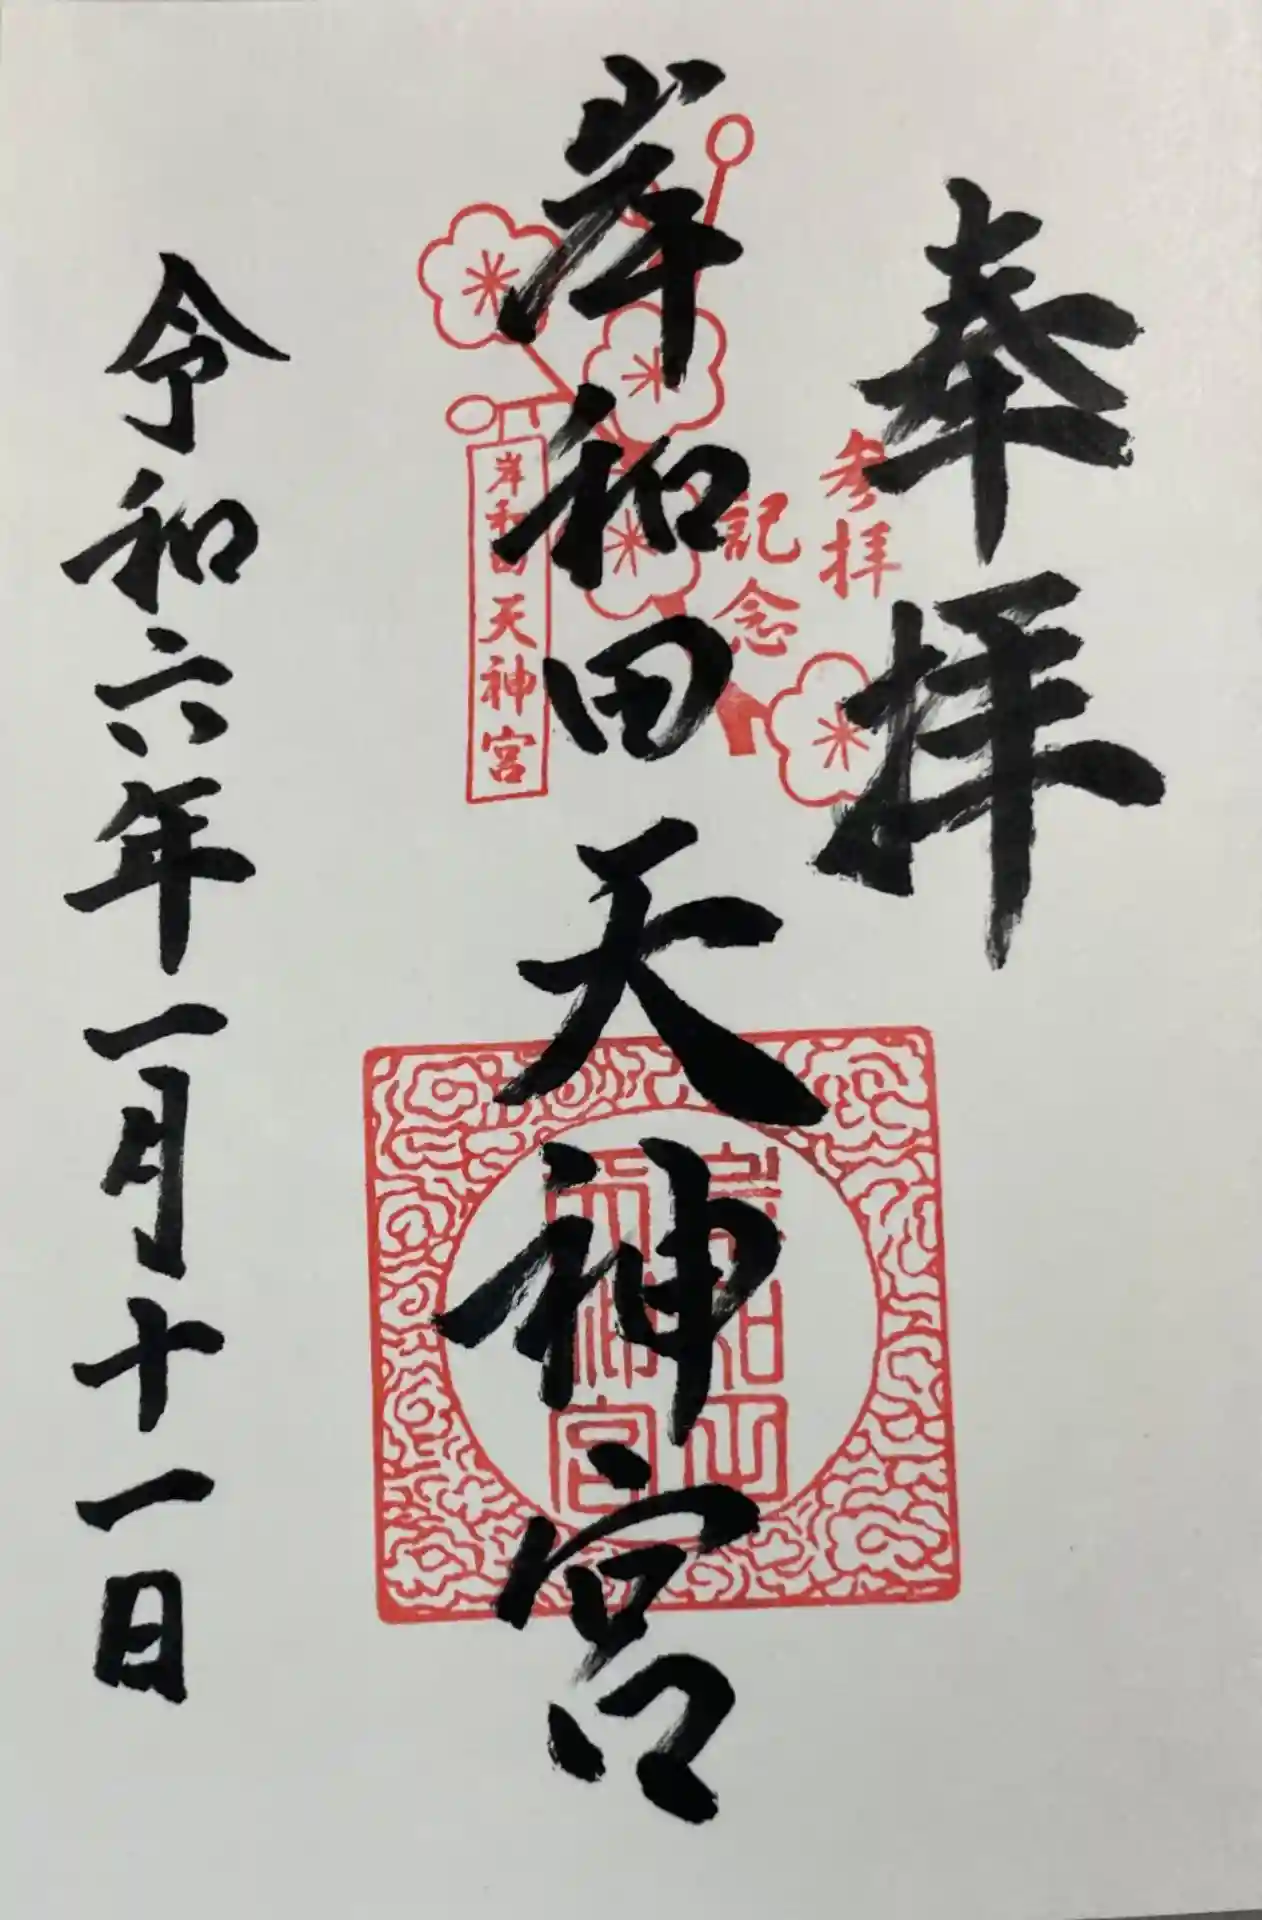 奉拝
参拝
記念
岸和田天神宮
岸和田天神宮
令和六年一月十一日